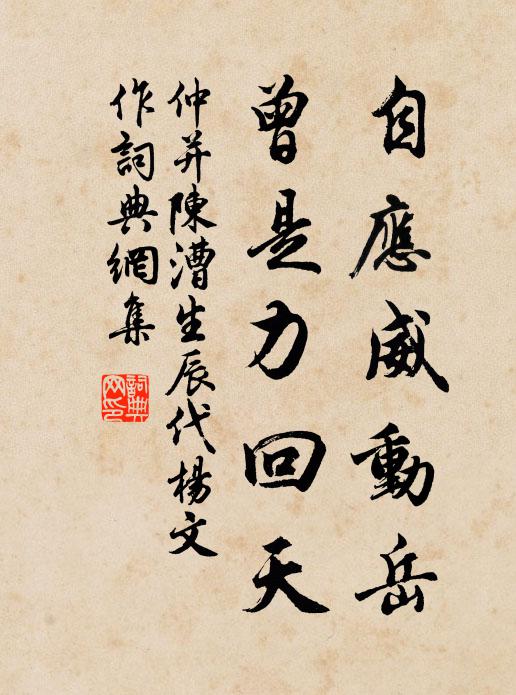 自應威動岳
曾是力回天
仲并陳漕生辰代楊文
作詞典網集
詞典
网印